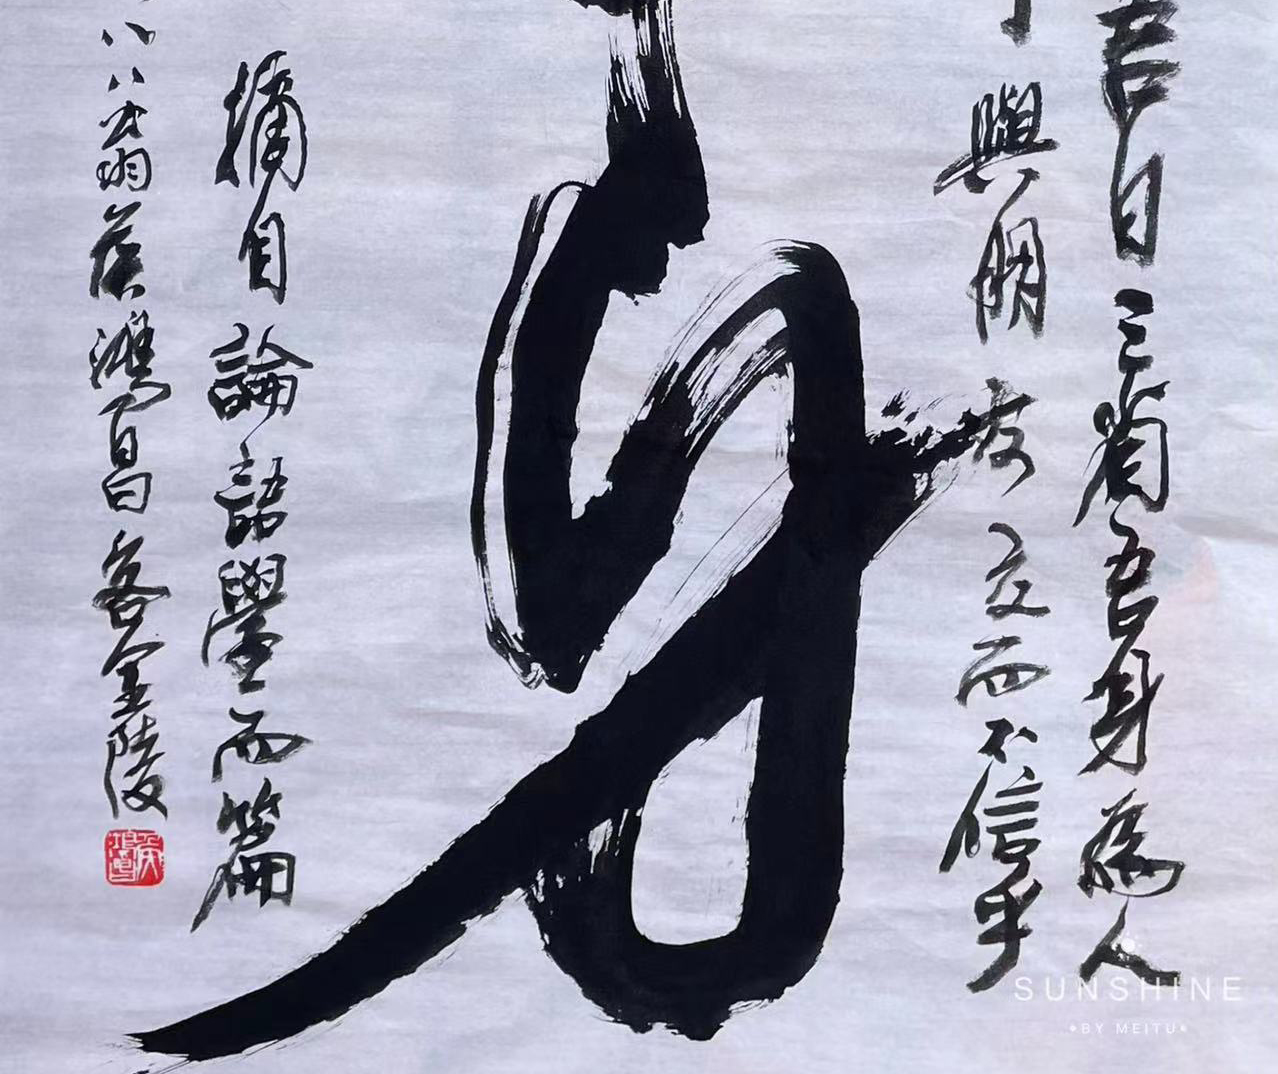 吾日三省吾身為人
與朋友交而不信乎
身
摘自論語學而篇
八八叟翁侯鴻昌客金陵
SUNSHINE
BY MEITU